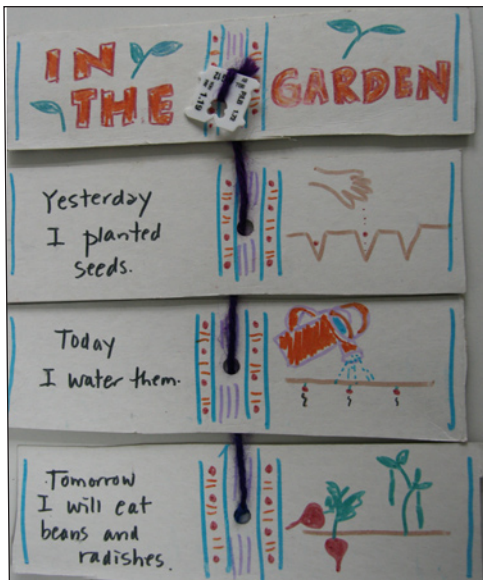 IN
THE
GARDEN
Yesterday
I planted
seeds.
Today
I water them.
Tomorrow
I will eat
beans and
radishes.